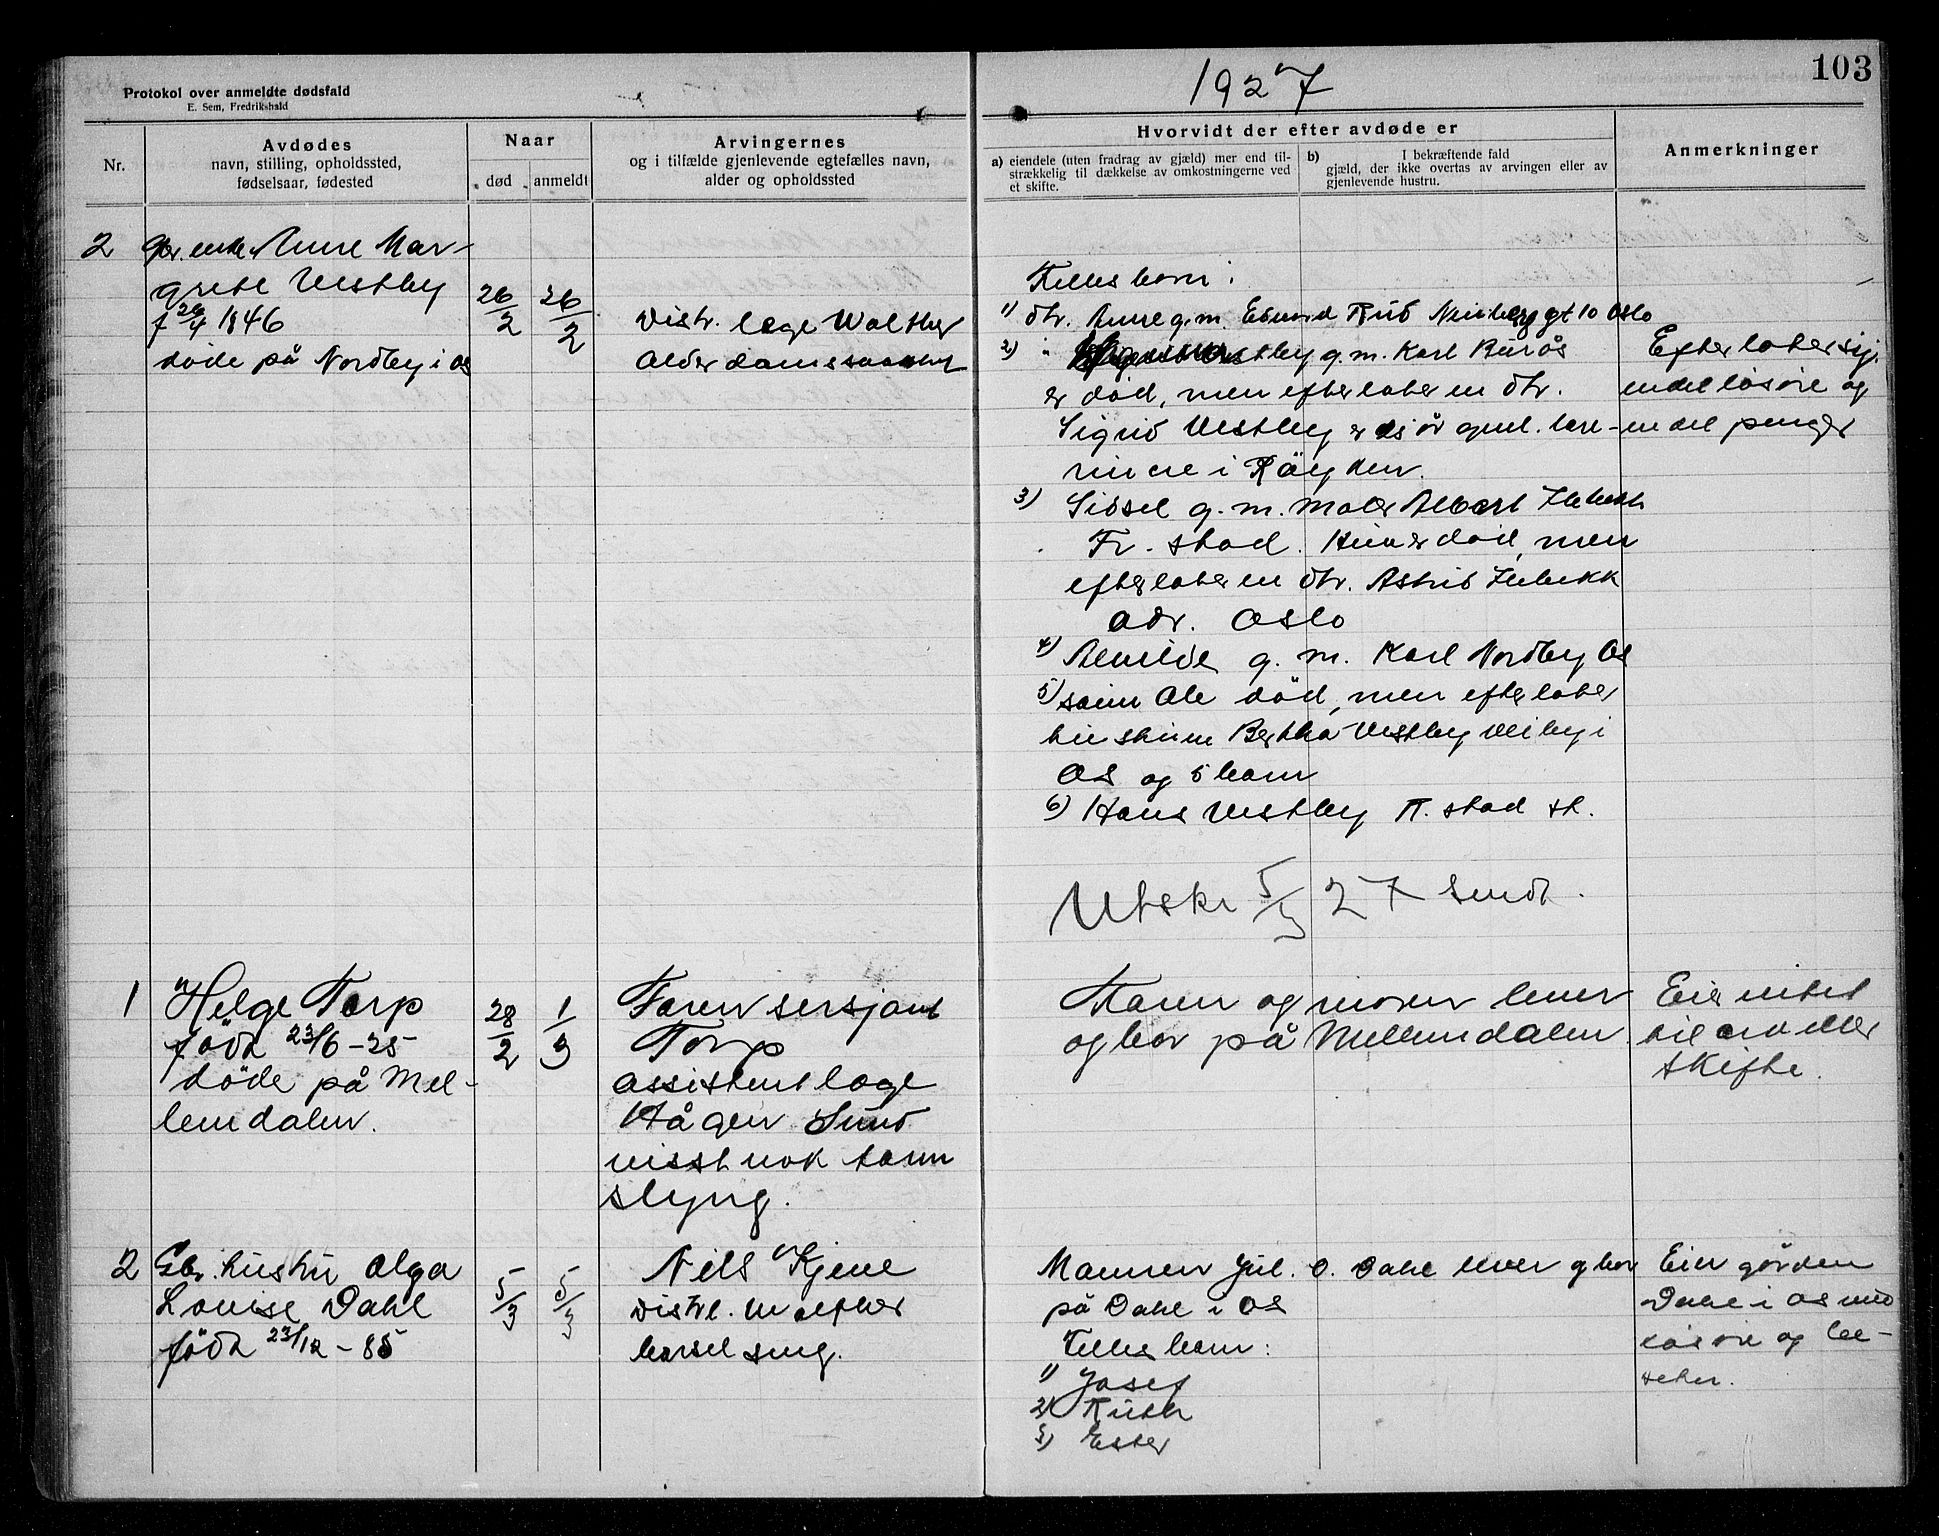 103
1927
Protokol over anmeldte dødsfald
E. Sem, Fredrikshald
Nr.
Avdødes
navn, stilling, opholdssted,
fødselsaar, fødested
Naar
død
anmeldt
Arvingernes
og i tilfælde gjenlevende egtefælles navn,
alder og opholdssted
Hvorvidt der efter avdøde er
a) eiendele (uten fradrag av gjæld) mer end til-
strækkelig til dækkelse av omkostningerne ved
et skifte.
b) I bekræftende fald
gjæld, der ikke overtas av arvingen eller av
gjenlevende hustru.
Anmerkninger
2
enke Anne Mar-
grete Vestby
f 26/4 1846
døde på Nordby i Os
26/2
26/2
Distr. læge Walther
Alderdomssvakhet
Felles barn:
1) dtr. Anne g. m. Edvind Rud gt 10 Oslo
2) " g. m. Karl Burås
er död, men efterlater en dtr.
Sigrid Vestby er lære-
rinne i Röyken
3) Sidsel g. m. maler Albert
Fr. stad. Hun er död, men
efterlater en dtr. Astrid
adr. Oslo
4) g. m. Karl Nordby Os
5) sönn Ole död, men efterlater
hustruen Bertha Vestby i
Os og 5 barn
6) Hans Vestby Fr. stad st.
Utskr 5/3 27 Sendt.
Efterlater sig
endel lösöre og
endel penger
1
Helge Torp
född 23/6 - 25
döde på Mel-
lemdalen.
28/2
1/3
Faren sersjant
Torp
assistentlæge
Hågen Sund
visstnok tarm
slyng.
Faren og moren lever
og bor på Mellemdalen
Eier intet
til arv eller
skifte.
2
Gbr. hustru Olga
Louise Dahl
född 23/12 - 85
5/3
5/3
Nils Kjene
distrl.
barselseng.
Mannen Jul. O. Dahl lever og bor
på Dahl i Os
Felles barn:
1) Josef
2) Ruth
3) Ester
Eier gården
Dahl i Os med
lösöre og be-
setn.